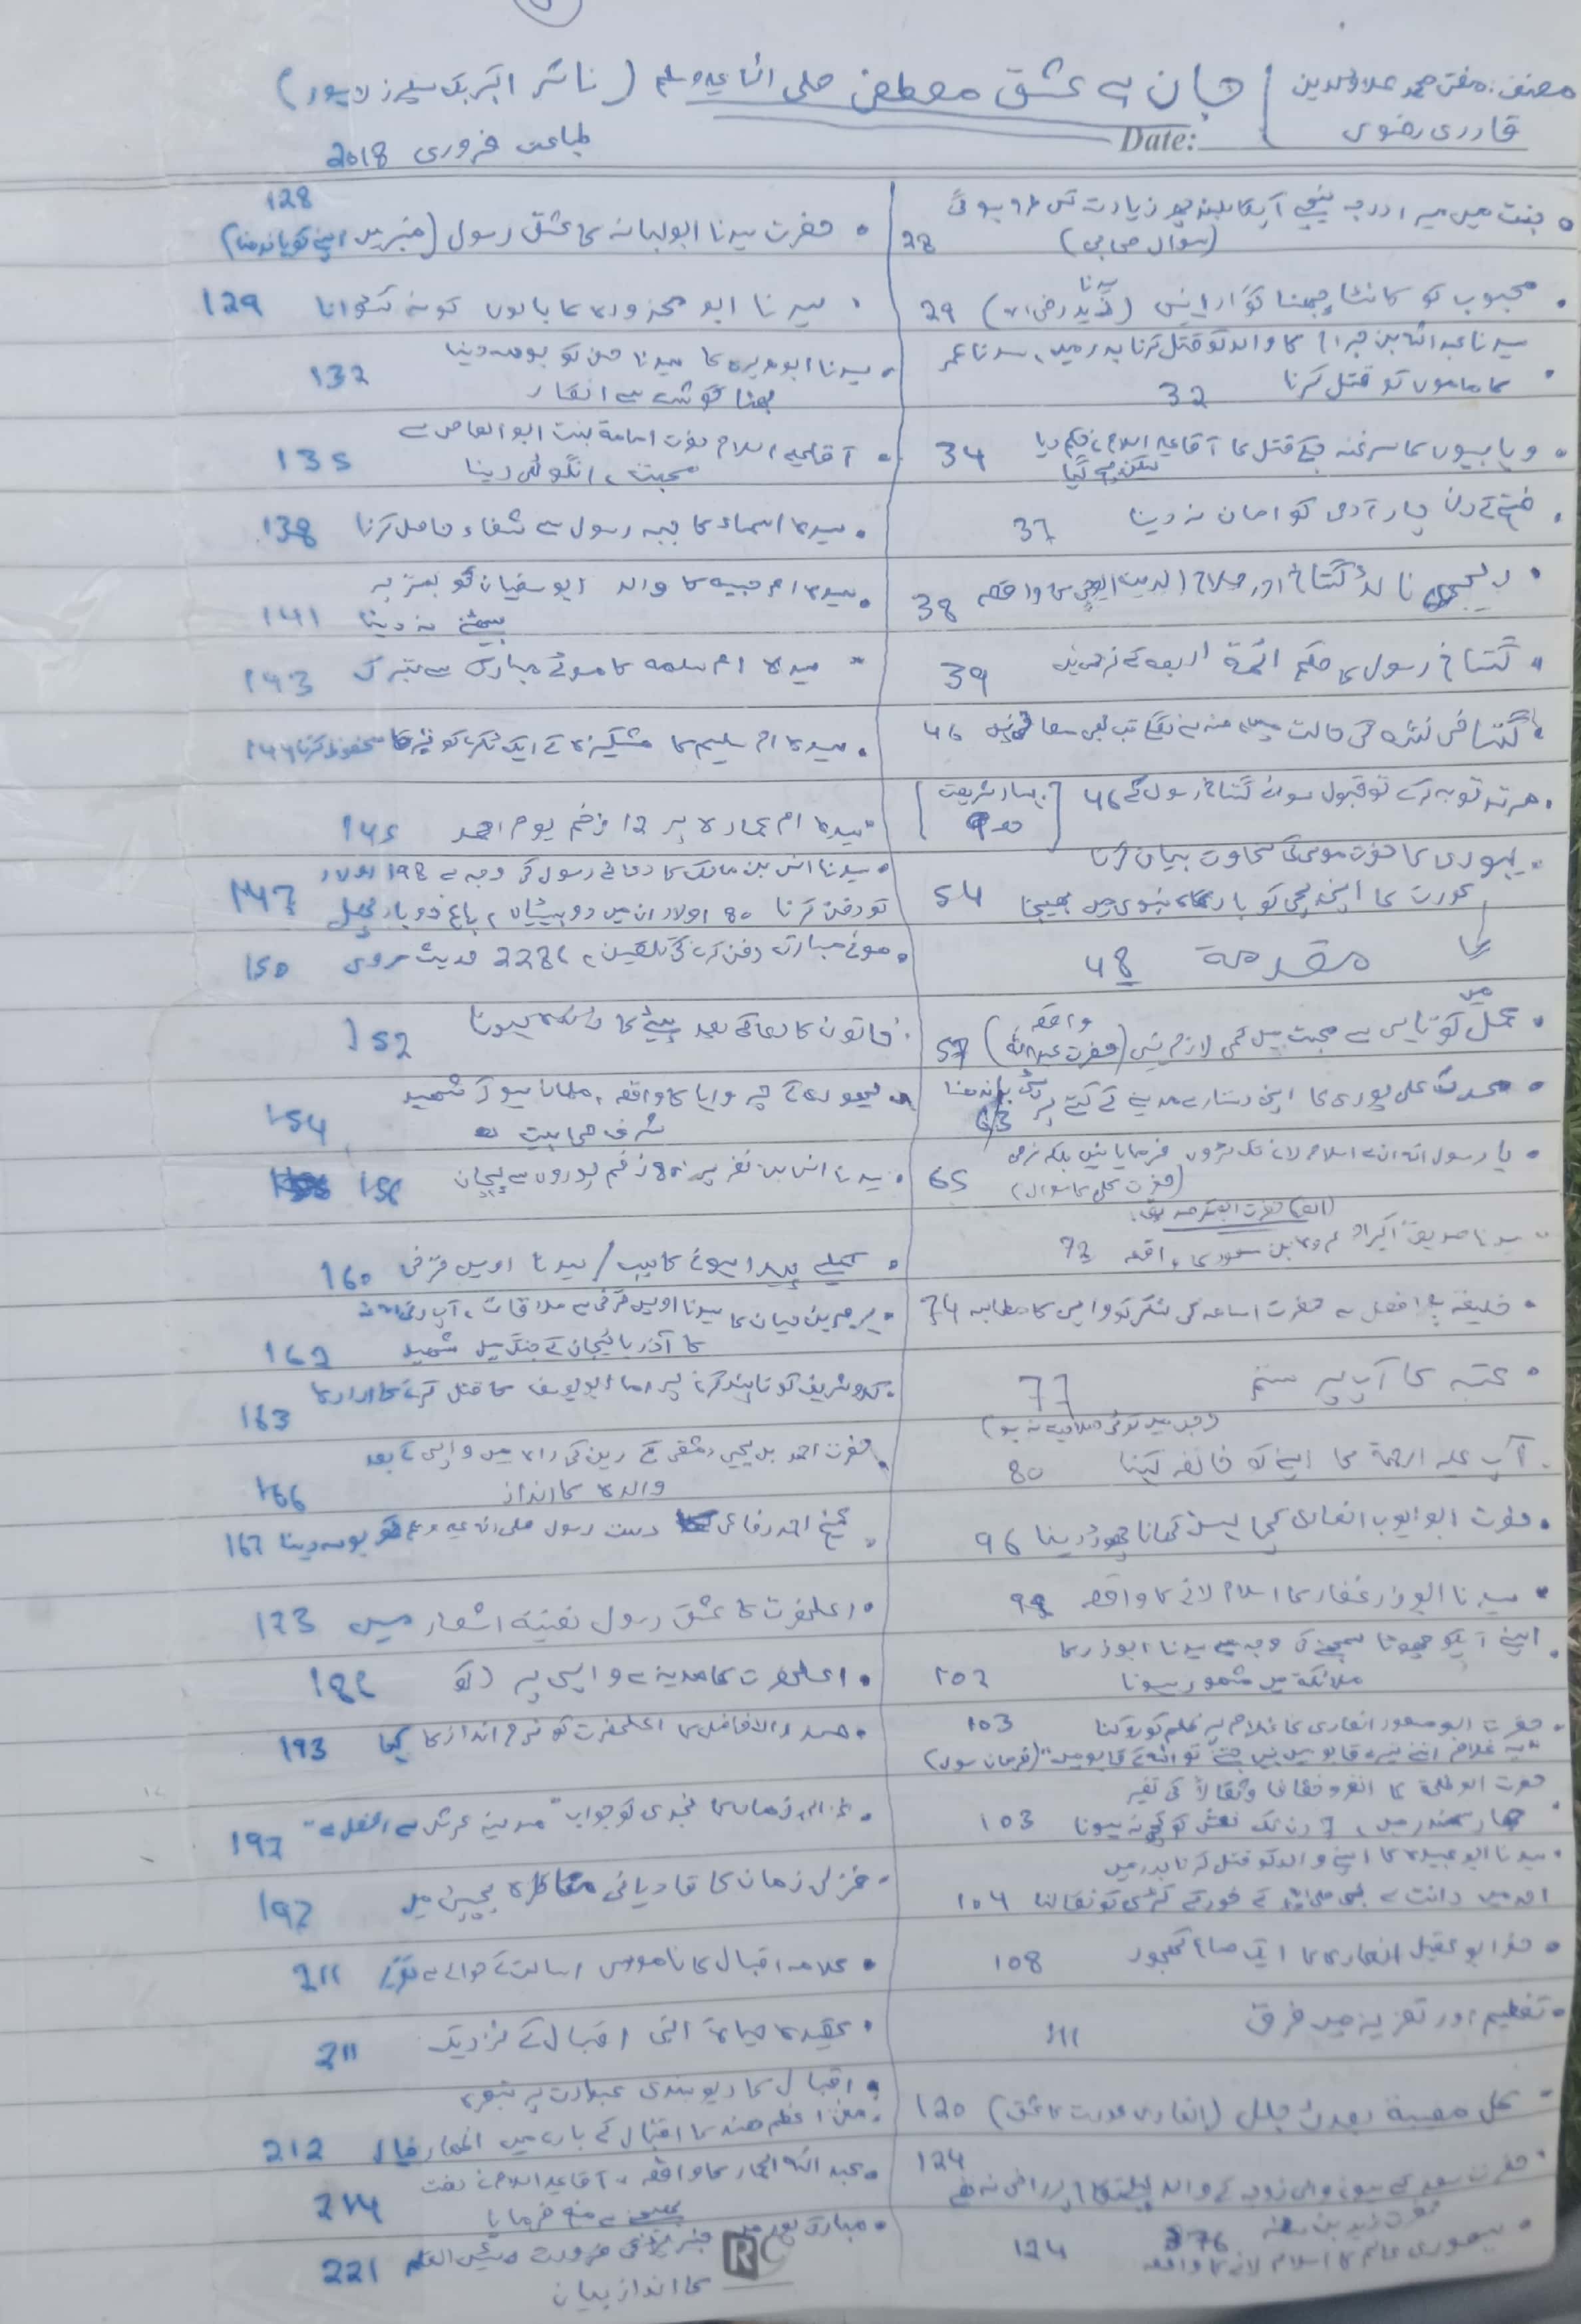 مصنف: مفتی محمد علاؤالدین قادری رضوی
جان ہے عشق مصطفٰی صلی اللہ علیہ وسلم (ناشر اکبر بک سیلرز لاہور)
Date:
طباعت فروری 2018
جنت میں میرا درجہ آپ کا بلند پھر زیارت کس طرح ہو گی (سوال صحابی) 28
محبوب کو کانٹا چبھنا گوارا نہیں (سیدنا زید رضی اللہ) 29
سیدنا عبداللہ بن جراح کا والد کو قتل کرنا بدر میں، سیدنا عمر
کا ماموں کو قتل کرنا 32
وہابیوں کا سرغنہ جسکے قتل کا آقا علیہ السلام نے حکم دیا 34
فتح کے دن چار آدمی کو امان نہ دینا 37
اور صلاح الدین ایوبی کا واقعہ 38
گستاخ رسول کا حکم ائمۃ اربعہ کے نزدیک 39
گستاخی نشہ کی حالت میں منہ سے نکلے تب بھی معافی نہیں 46
ہر مرتد توبہ کرے تو قبول سوائے گستاخ رسول کے 46 [بہار شریعت]
یہودی کا حضرت موسی کی سخاوت بیان کرنا
عورت کا اپنی بچی کو بارگاہ نبوی میں بھیجنا 54
مقدمہ 48
عمل میں کوتاہی سے محبت میں کمی لازم نہیں (حضرت عبداللہ واقعہ) 57
محدث علی پوری کا اپنی دستار مدینے کے کتے پر باندھنا 63
یا رسول اللہ ان سے اسلام لانے تک لڑوں فرمایا نہیں بلکہ نرمی
(حضرت علی کا سوال) 65
سیدنا صدیق اکبر اور عروہ بن مسعود کا واقعہ 72
خلیفہ بلا فصل سے حضرت اسامہ کی لشکر کو واپسی کا مطالبہ 74
عتبہ کا آپ پر ستم 77
آپ علیہ الرحمۃ کا اپنے کو خالفہ کہنا 80
(جس میں کوئی صلاحیت نہ ہو)
حضرت ابو ایوب انصاری کا لہسن کھانا چھوڑ دینا 96
سیدنا ابوذر غفاری کا اسلام لانے کا واقعہ 99
اپنے آپکو چھوٹا سمجھنے کی وجہ سے سیدنا ابوذر کا
ملائکہ میں مشہور ہونا 102
حضرت ابو مسعود انصاری کا غلام پر ظلم کو روکنا 103
حضرت ابو طلحۃ کا انفروا خفافا وثقالاً کی تفسیر
جہاد سمندر میں، 7 دن تک نعش کو کچھ نہ ہونا 103
سیدنا ابو عبیدہ کا اپنے والد کو قتل کرنا بدر میں
احد میں دانت سے خود کے کڑی کو نکالنا 104
حضرت ابو عقیل انصاری کا ایک صاع کھجور 108
تعظیم اور تعزیہ میں فرق 111
کل مصیبۃ بعدک جلل (انصاری عورت کا عشق) 120
124
حضرت زید بن سعنہ
یہودی عالم کا اسلام لانے کا واقعہ 124
حضرت سیدنا ابو لبابہ کا عشق رسول 128
سیدنا ابو محذورہ کا بالوں کو نہ کٹوانا 129
سیدنا ابو ہریرہ کا سیدنا حسن کو بوسہ دینا
بھنا گوشت سے انکار 132
آقا علیہ السلام حضرت امامۃ بنت ابو العاص سے
محبت، انگوٹھی دینا 135
سیدہ اسماء کا جبہ رسول سے شفاء حاصل کرنا 138
سیدہ ام حبیبہ کا والد ابو سفیان کو بستر پہ
بیٹھنے نہ دینا 141
سیدہ ام سلمہ کا موئے مبارک سے تبرک 143
سیدہ ام سلیم کا مشکیزہ کے ایک ٹکڑے کو محفوظ کرنا 144
سیدہ ام عمارہ پر 12 زخم یوم احد 145
سیدنا انس بن مالک کا دعائے رسول کی وجہ سے 198 اولاد
کو دفن کرنا 80 اولاد ان میں دو بیٹیاں، باغ دو بار پھل 147
موئے مبارک دفن کرنے کی تلقین، 2286 حدیث مروی 150
خاتون کا دعا کے بعد بیٹے کا زندہ ہونا 152
یہودی کے چرواہا کا واقعہ، مسلمان ہو کر شہید
شرف صحابیت 154
سیدنا انس بن نضر پر 80 زخم پوروں سے پہچان 156
کیلے پیدا ہونے کا سبب/سیدنا اویس قرنی 160
ہرم بن حیان کا سیدنا اویس قرنی سے ملاقات، آپ رضی اللہ عنہ
کا آذربائیجان کے جنگ میں شہید 162
کدو شریف کو ناپسند کرنے پر امام ابو یوسف کا قتل کرنے کا ارادہ 163
حضرت احمد بن یحیی دمشقی کے دین کی راہ میں واپسی کے بعد
والدہ کا انداز 166
شیخ احمد رفاعی دست رسول صلی اللہ علیہ وسلم کو بوسہ دینا 167
اعلحضرت کا عشق رسول نعتیہ اشعار میں 173
اعلحضرت کا مدینہ سے واپسی پر 186
صدر الافاضل کا اعلحضرت کو نرم انداز کا کہنا 193
غزالی زماں کا نجدی کو جواب "مدینہ عرش سے افضل ہے" 197
غزالی زماں کا قادیانی مناظرہ بچپن میں 197
علامہ اقبال کا ناموس رسالت کے حوالے سے 211
عقیدہ حیاۃ النبی اقبال کے نزدیک 211
اقبال کا دیوبندی عبارت پر تبصرہ
مفتی اعظم ہند کا اقبال کے بارے میں اظہار خیال 212
عبداللہ الحمار کا واقعہ، آقا علیہ السلام نے لعنت
بھیجنے سے منع فرمایا 214
کا انداز بیان 221